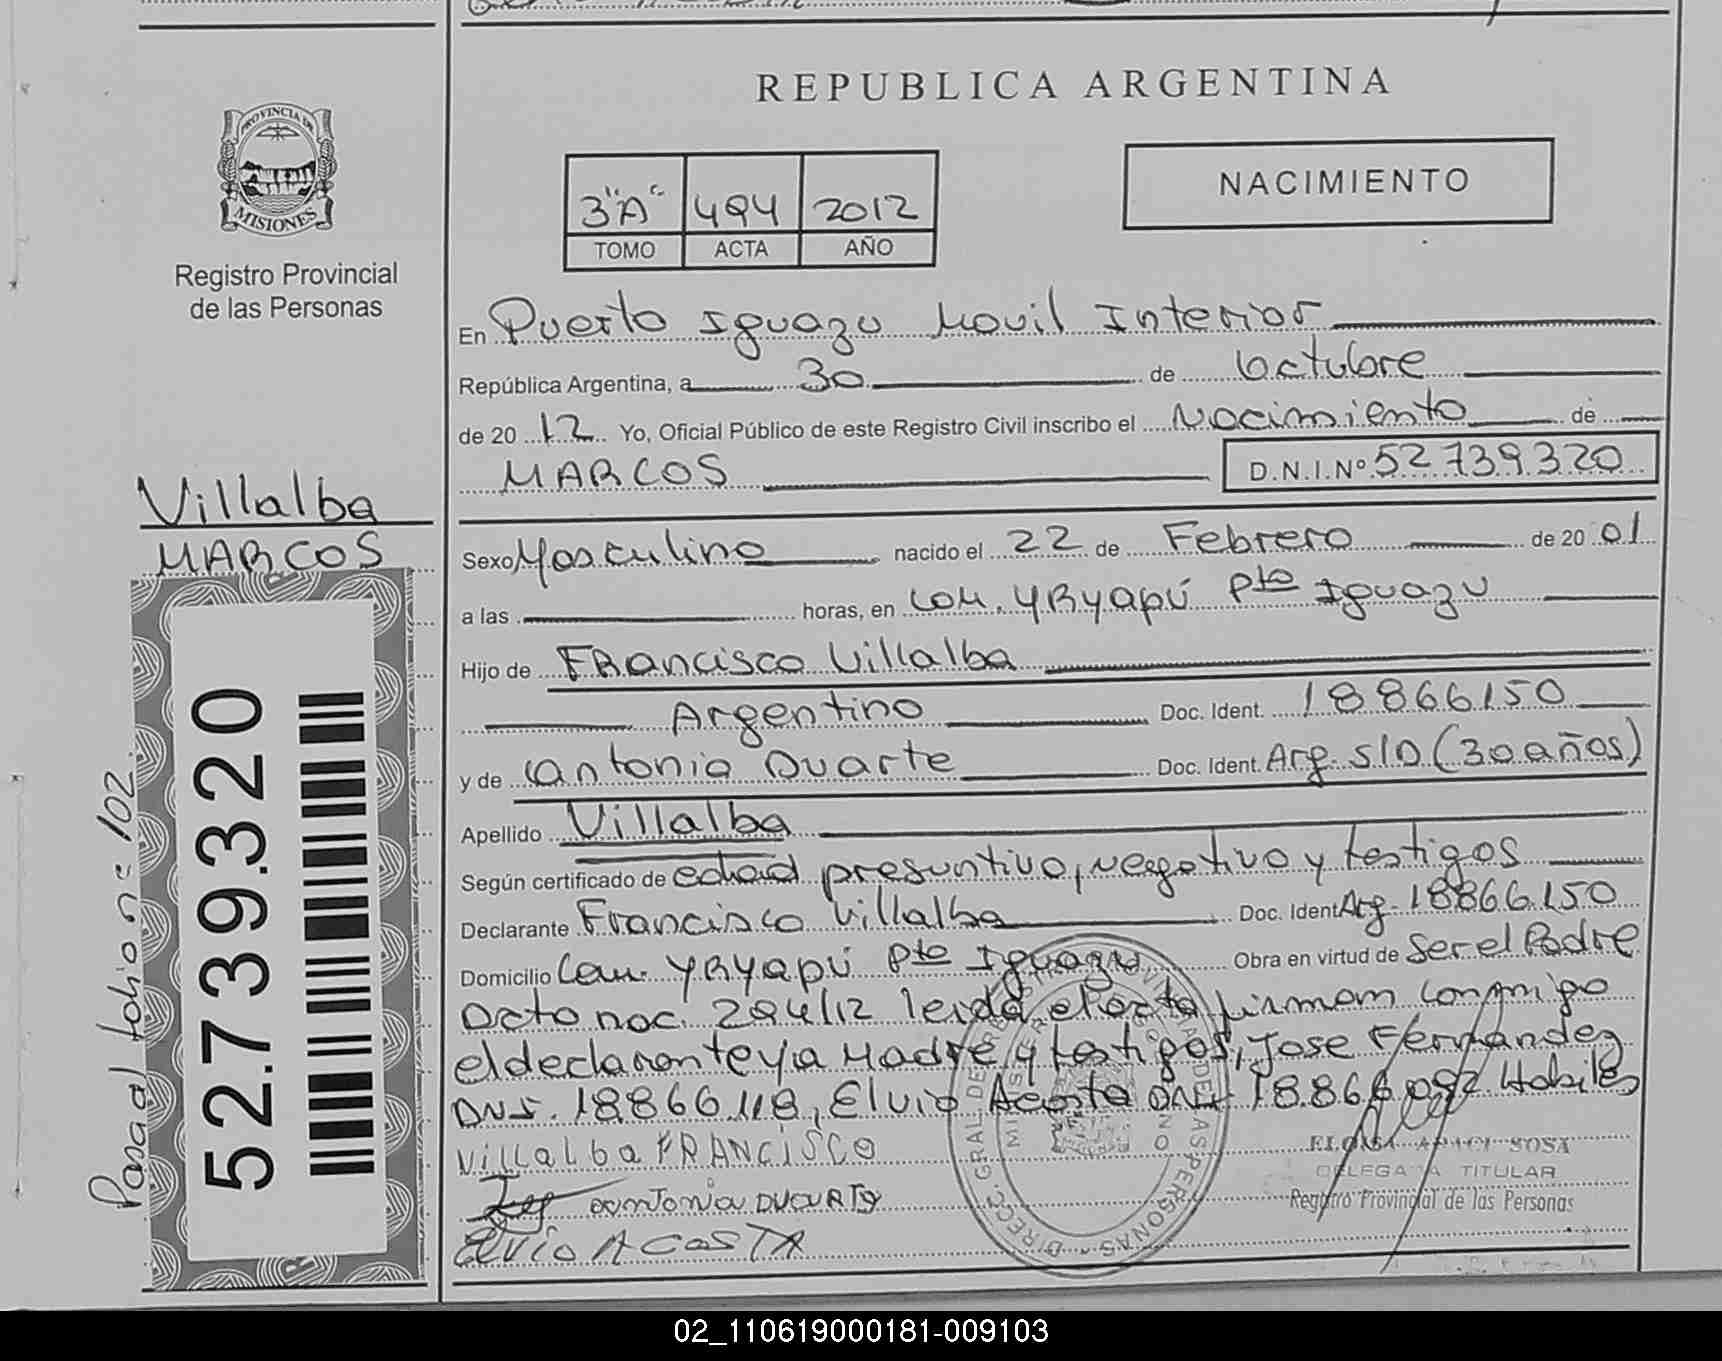 REPUBLICA ARGENTINA
PROVINCIA DE
MISIONES
Registro Provincial
de las Personas
3"A" 494 2012
TOMO ACTA AÑO
NACIMIENTO
En Puerto Iguazu Movil Interior
República Argentina, a 30 de Octubre
de 20 12 Yo, Oficial Público de este Registro Civil inscribo el Nacimiento de
MARCOS D.N.I.Nº 52 739320
Villalba
MARCOS
Sexo Masculino nacido el 22 de Febrero de 20 01
a las horas, en Com. YRyapú Pto Iguazu
Hijo de FRancisco Villalba
Argentino Doc. Ident. 18866150
y de Antonia Duarte Doc. Ident. Arg. S/D (30 años)
Apellido Villalba
Según certificado de edad presuntiva, negativo y testigos
Declarante Francisco Villalba Doc. Ident Arg. 18866.150
Domicilio Com. YRyapú Pto Iguazu Obra en virtud de Ser el Padre
Dcto nac. 294/12 leida el acta firman conmigo
el declarante y la Madre y testigos, Jose Fernandez
DNI. 18.866.118, Elvio Acosta DNI 18.866.092 Habiles
Villalba FRANCISCO
antonia DUARTE
Elvio ACOSTA
ELOISA SOSA
DELEGADA TITULAR
Registro Provincial de las Personas
52.739.320
Pasa al folio nº 102
02_110619000181-009103